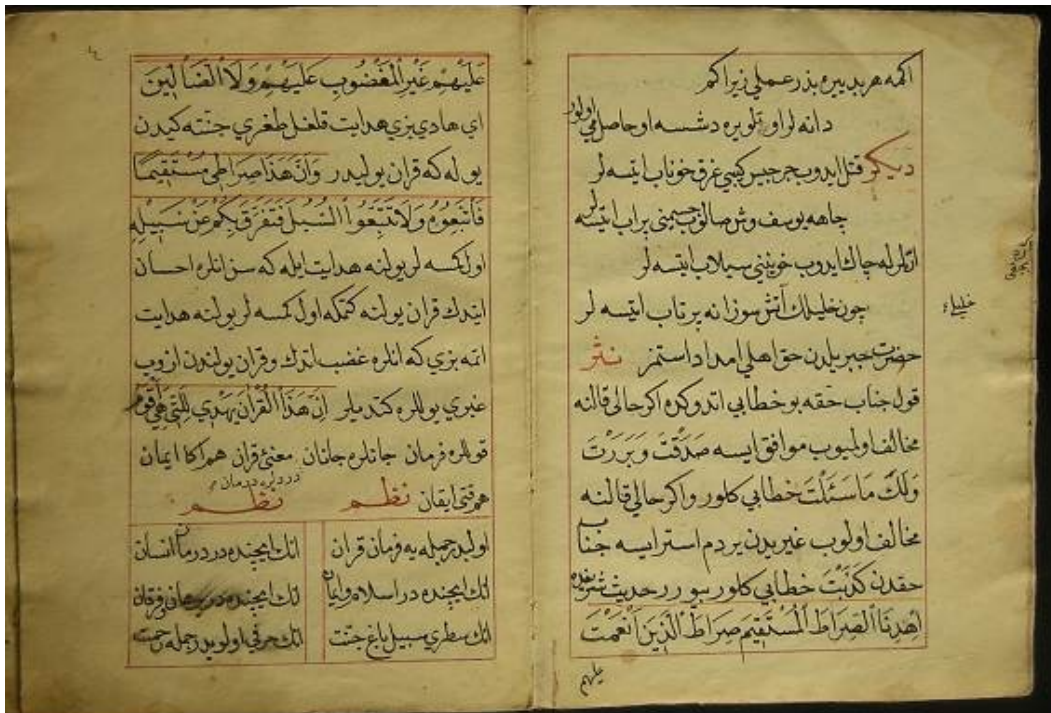 اكمه هر بد ييره بذر عملي زيرا كم
دانه لر او تلو يره دشسه او حاصلمي اولور
ديكر قتل ايدوب جرجيس كبي غرق خوناب ايتسه لر
چاهه يوسف وش صالوب جسمني پر اب ايتسه لر
ارّه لر له چاك ايدوب خونيني سيلاب ايتسه لر
چون خليلك آتش سوزانه پرتاب ايتسه لر
خليلي
حضرت جبريلدن حق اهلي امداد استمز نثر
قول جناب حقه بو خطابي اتدوكده اكر حالي قالنه
مخالف اولميوب موافق ايسه صَدَقْتَ وَبَرَرْتَ
وَلَكَ مَا سَئَلْتَ خطابي كلور و اكر حالي قالنه
مخالف اولوب غيريدن يردم استر ايسه جناب
حقدن كَذَبْتَ خطابي كلور بيورر حديث شريفده
اِهْدِنَا الصِّرَاطَ الْمُسْتَقِيمَ صِرَاطَ الَّذِينَ اَنْعَمْتَ
عليهم
عَلَيْهِمْ غَيْرِ الْمَغْضُوبِ عَلَيْهِمْ وَلَا الضَّالِّينَ
اي هادي بزي هدايت قلغل طغري جنته كيدن
يوله كه قران يوليدر وَاَنَّ هَذَا صِرَاطِي مُسْتَقِيمًا
فَاتَّبِعُوهُ وَلَا تَتَّبِعُوا السُّبُلَ فَتَفَرَّقَ بِكُمْ عَنْ سَبِيلِهِ
اول كمسه لر يولنه هدايت ايله كه سن انلره احسان
ايتدك قران يولنه كتمكه اول كمسه لر يولنه هدايت
اتمه بزي كه انلره غضب اتدك و قران يولندن ازوب
غيري يوللره كتديلر اِنَّ هَذَا الْقُرْآنَ يَهْدِي لِلَّتِي هِيَ اَقْوَمُ
قوللره فرمان جانلره جانان معنئ قران هم اكا ايمان
دردلره درمان
هم قني ايقان نظم نظم
اولدر جمله يه فرمان قران انك ايچنده در درمان انسان
انك ايچنده در اسلام و ايمان انك ايچنده در فرقان
انك سطري سبيل باغ جنت انك حرفي اولوبدر جمله رحمت